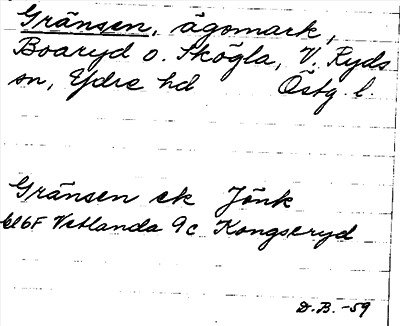 Gränsen, ägomark,
Boaryd o. Skögla, V. Ryds
sn, Ydre hd Östg. l.
Gränsen ek Jönk
6F Vetlanda 9c Kongseryd
D.B. -59